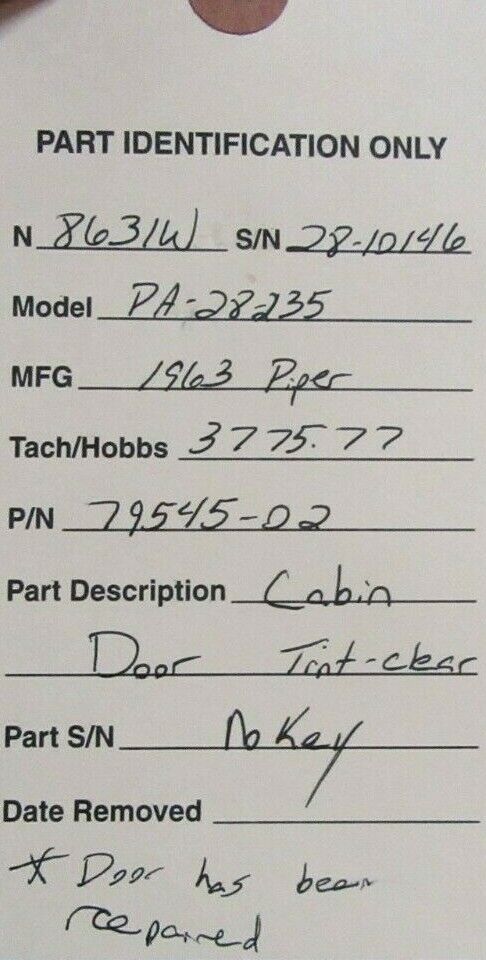 PART IDENTIFICATION ONLY
N 8631W S/N 28-10146
Model PA-28-235
MFG 1963 Piper
Tach/Hobbs 3775.77
P/N 79545-02
Part Description Cabin
Door Tint-clear
Part S/N No Key
Date Removed
* Door has been
repaired